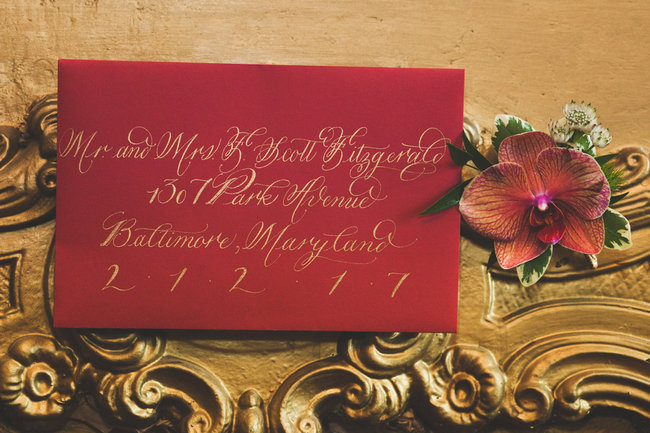 Mr. and Mrs. F. Scott Fitzgerald
1307 Park Avenue
Baltimore, Maryland
2 · 1 · 2 · 1 · 7